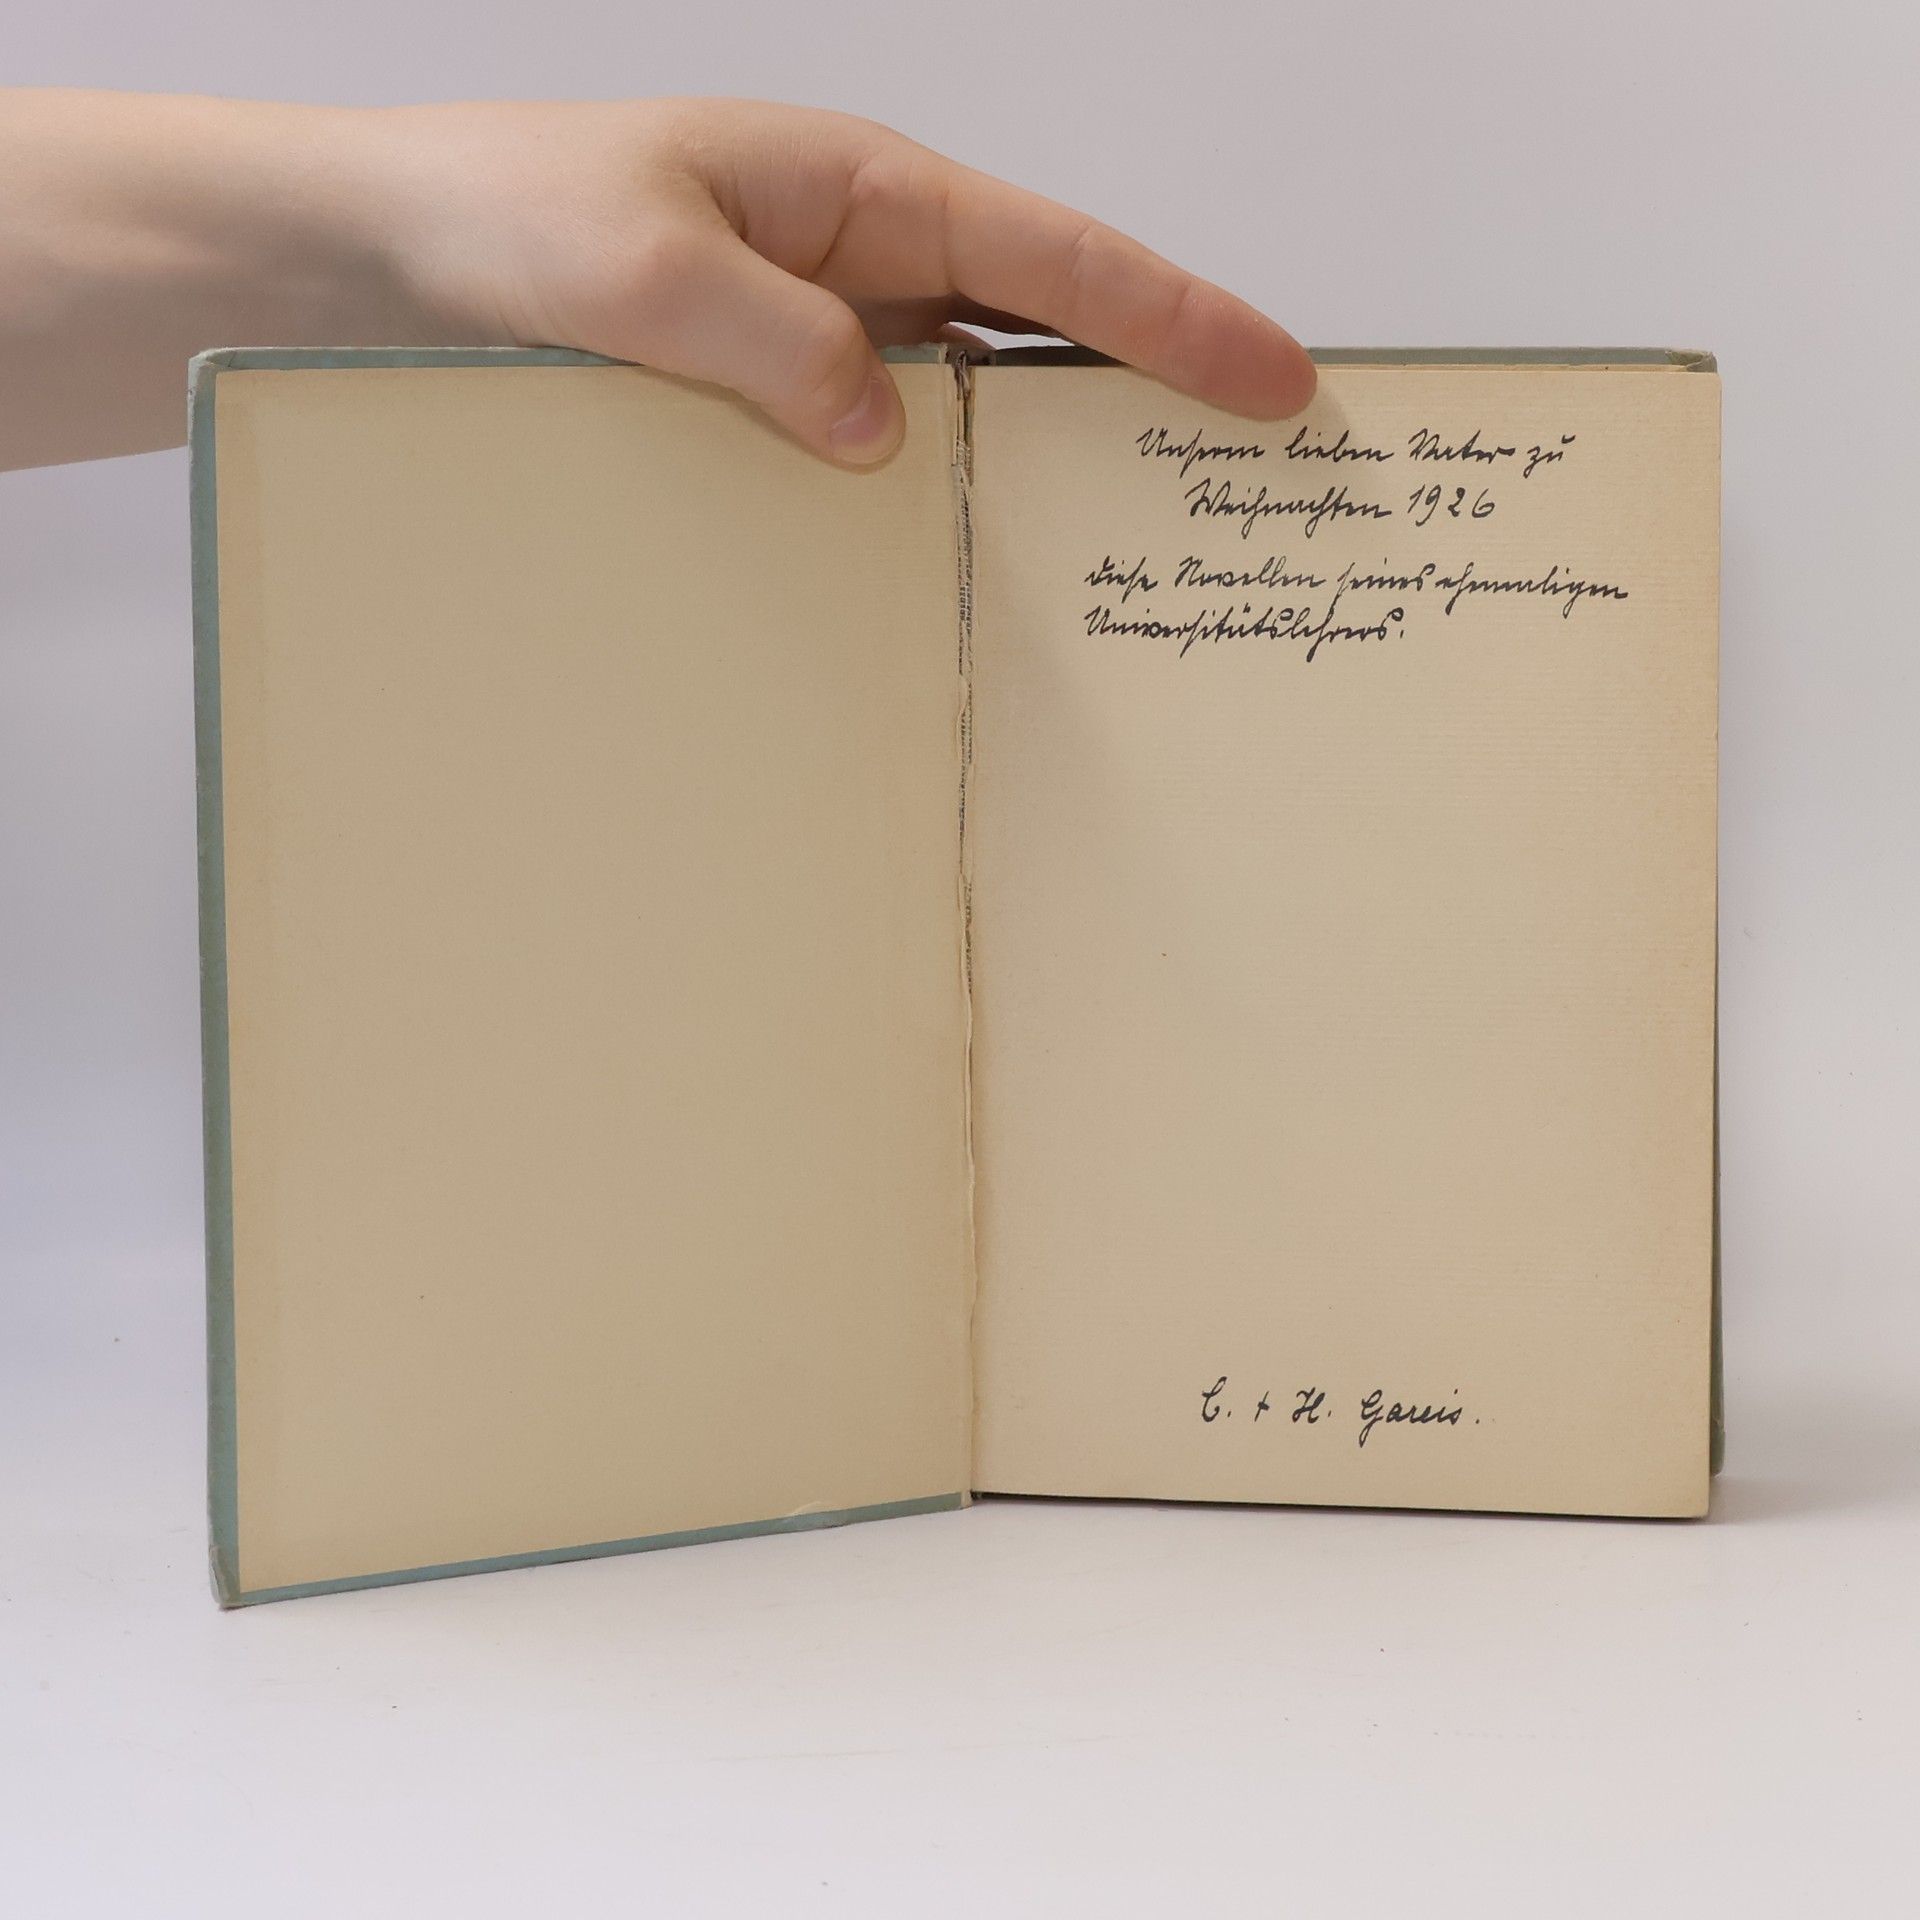 Unserm lieben Vater zu
Weihnachten 1926
diese Novellen seines ehemaligen
Universitätslehrers.
C. + H. Gareis.